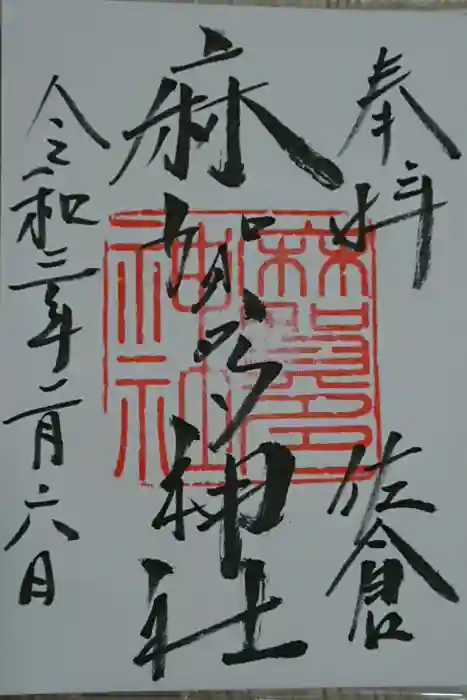 奉拝
佐倉
麻賀多神社
麻賀多神社
令和三年二月六日